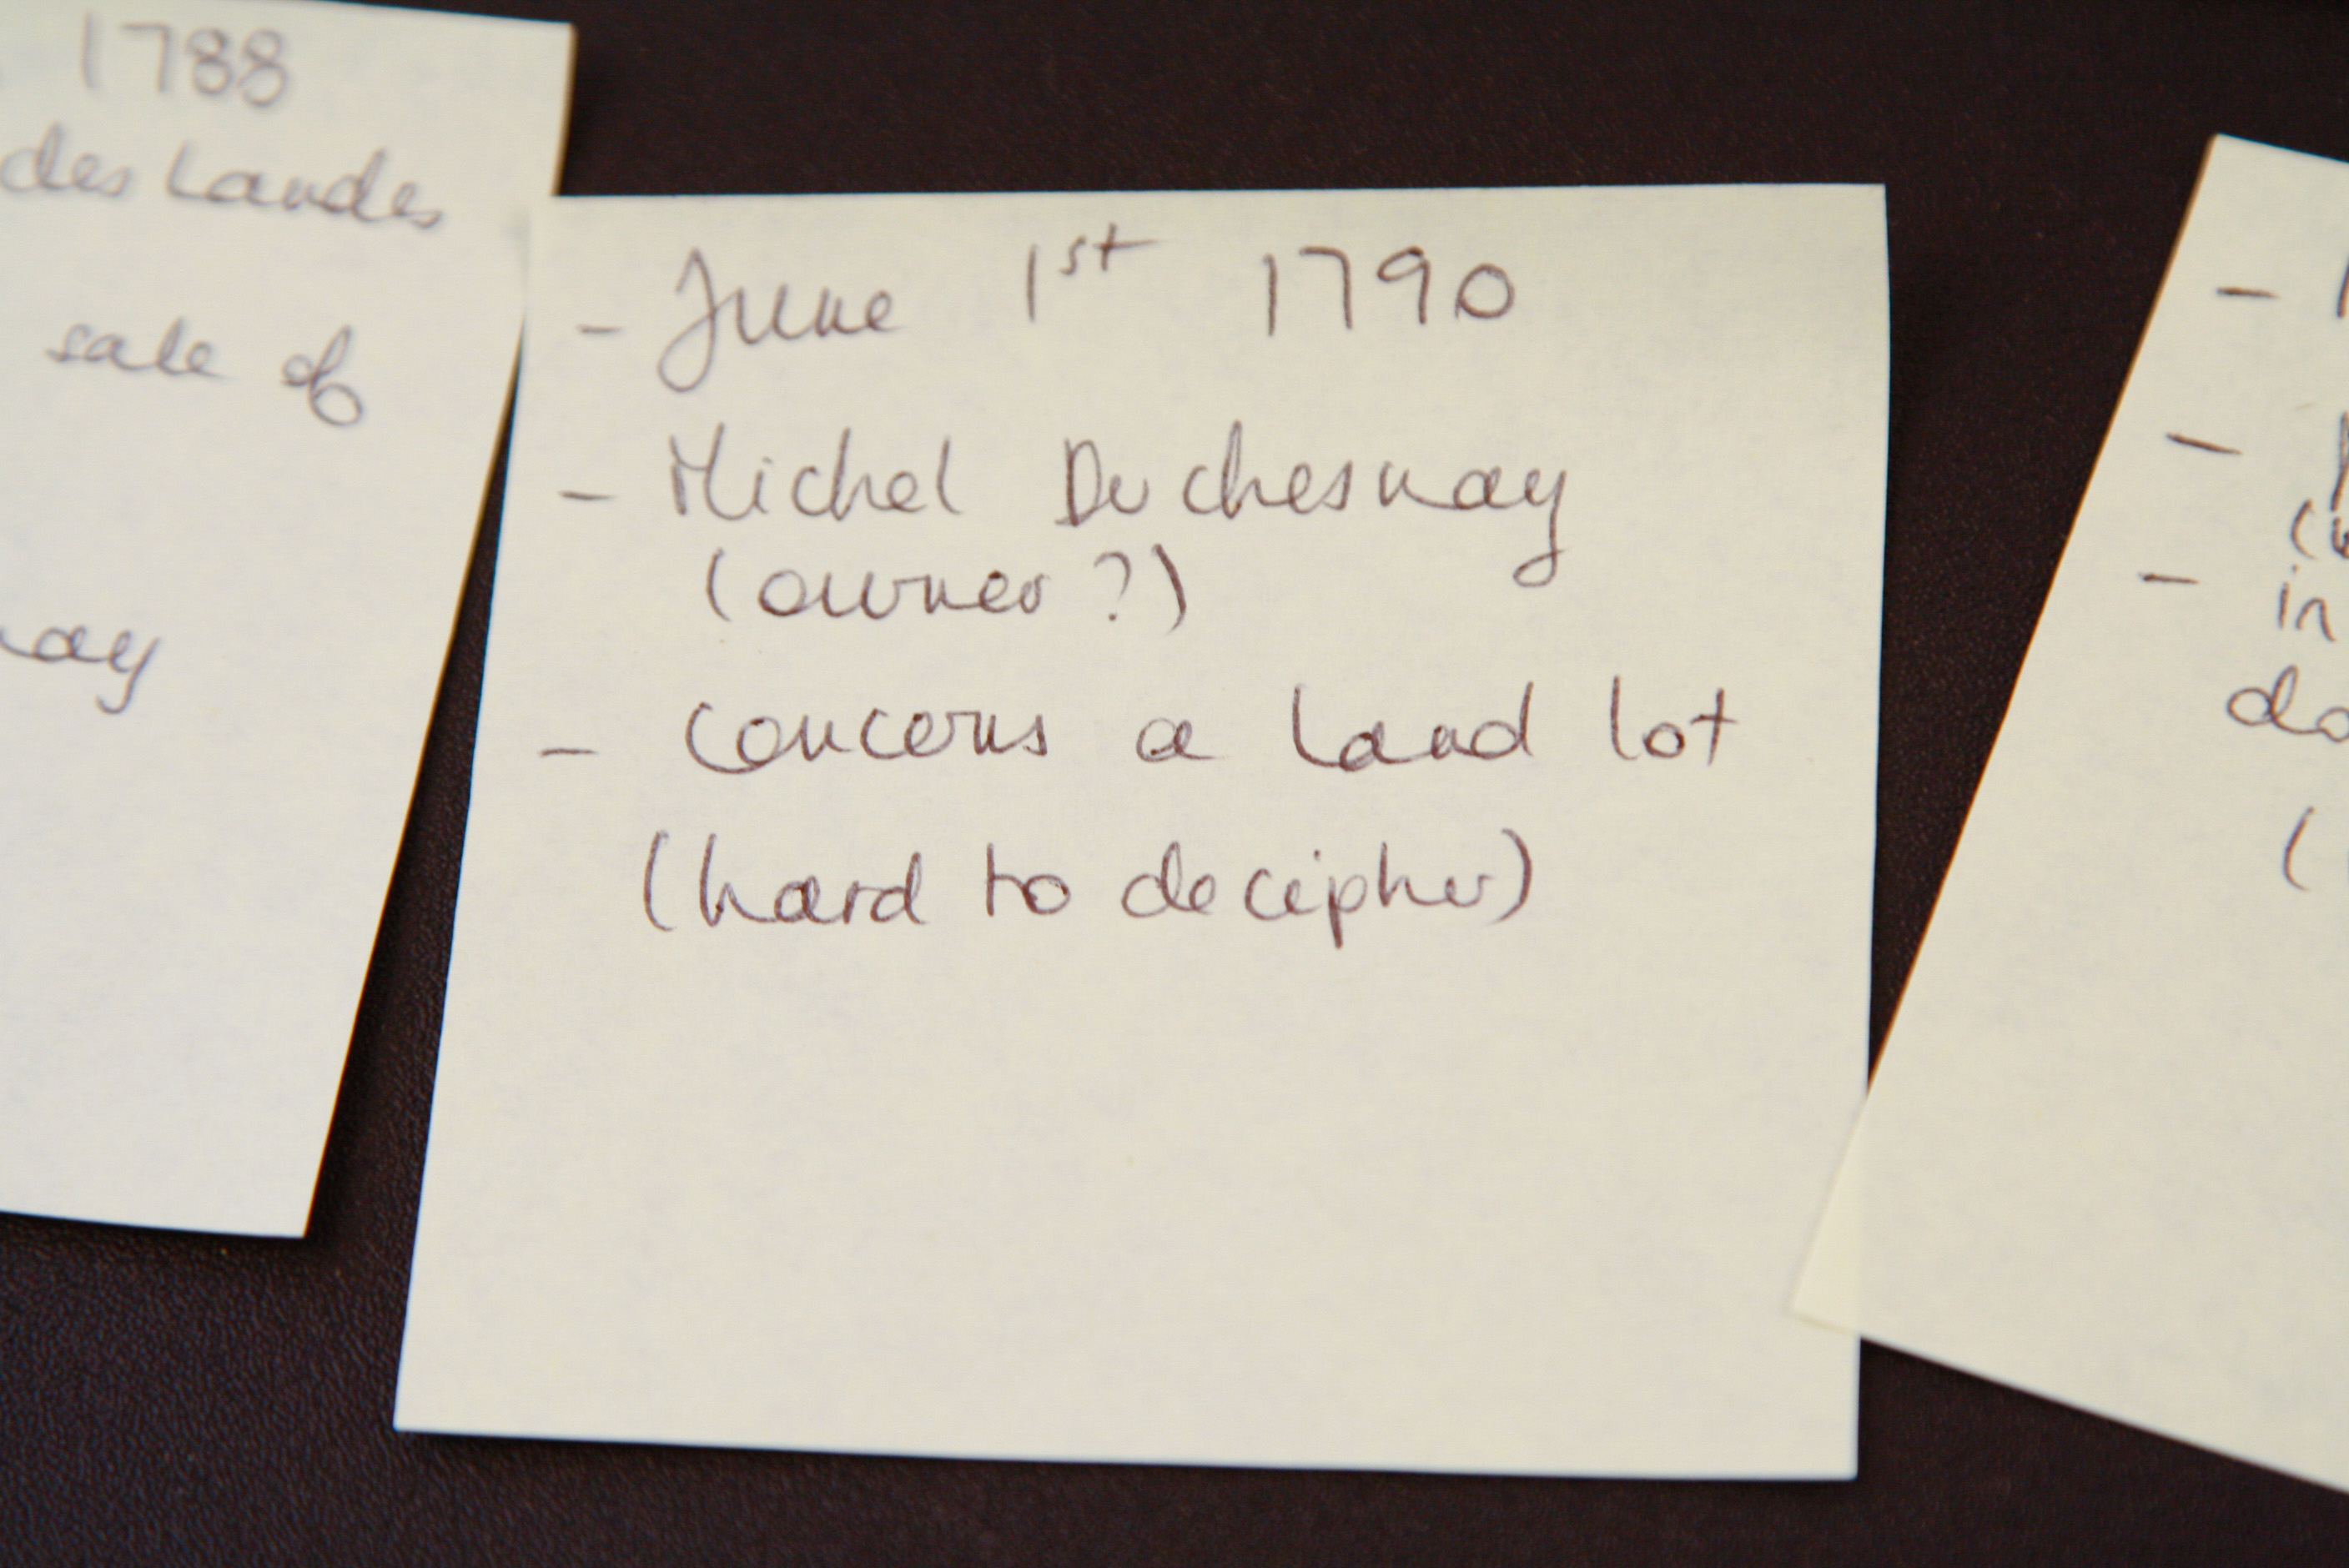 1788
des Landes
sale of
- June 1st 1790
- Michel Duchesnay
(owner ?)
- concerns a land lot
(hard to decipher)
-
-
- in